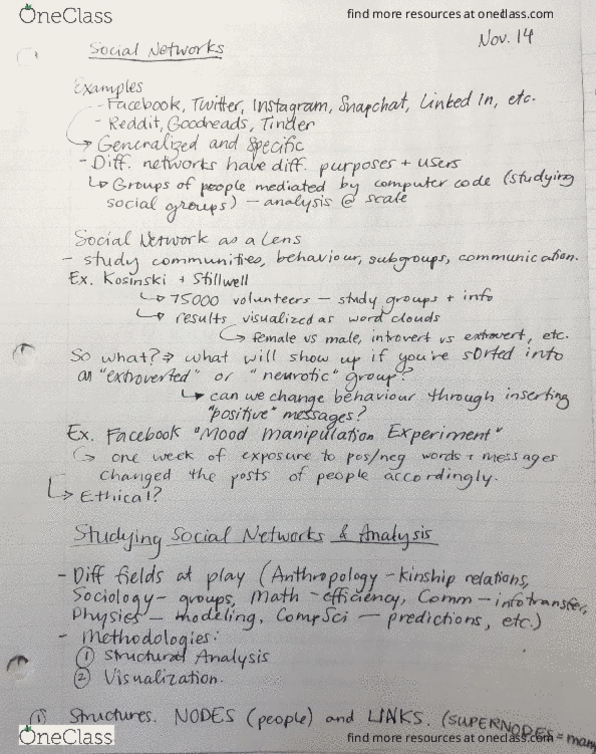 OneClass
find more resources at oneclass.com
Nov. 14
Social Networks
Examples
- Facebook, Twitter, Instagram, Snapchat, Linked In, etc.
- Reddit, Goodreads, Tinder
↳ Generalized and Specific
- Diff. networks have diff. purposes + users
↳ Groups of people mediated by computer code (studying
social groups) - analysis @ scale
Social Network as a Lens
- study communities, behaviour, subgroups, communication.
Ex. Kosinski + Stillwell
↳ 75000 volunteers - study groups + info
↳ results visualized as word clouds
↳ female vs male, introvert vs extrovert, etc.
So what? → what will show up if you're sorted into
an "extroverted" or "neurotic" group?
↳ can we change behaviour through inserting
"positive" messages?
Ex. Facebook "Mood Manipulation Experiment"
↳ one week of exposure to pos/neg words + messages
changed the posts of people accordingly.
↳ Ethical?
Studying Social Networks & Analysis
- Diff fields at play (Anthropology - kinship relations,
Sociology - groups, Math - efficiency, Comm - info transfer,
Physics - modeling, CompSci - predictions, etc.)
- Methodologies:
① Structural Analysis
② Visualization.
① Structures. NODES (people) and LINKS. (SUPERNODES = many
OneClass
find more resources at oneclass.com